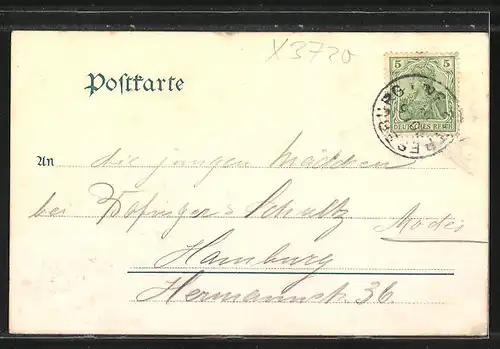 X3720
Postkarte
5 5
DEUTSCHES REICH
An die jungen Mädchen
bei Zofinger & Schultz
Modes
Hamburg
Hermannstr. 36.